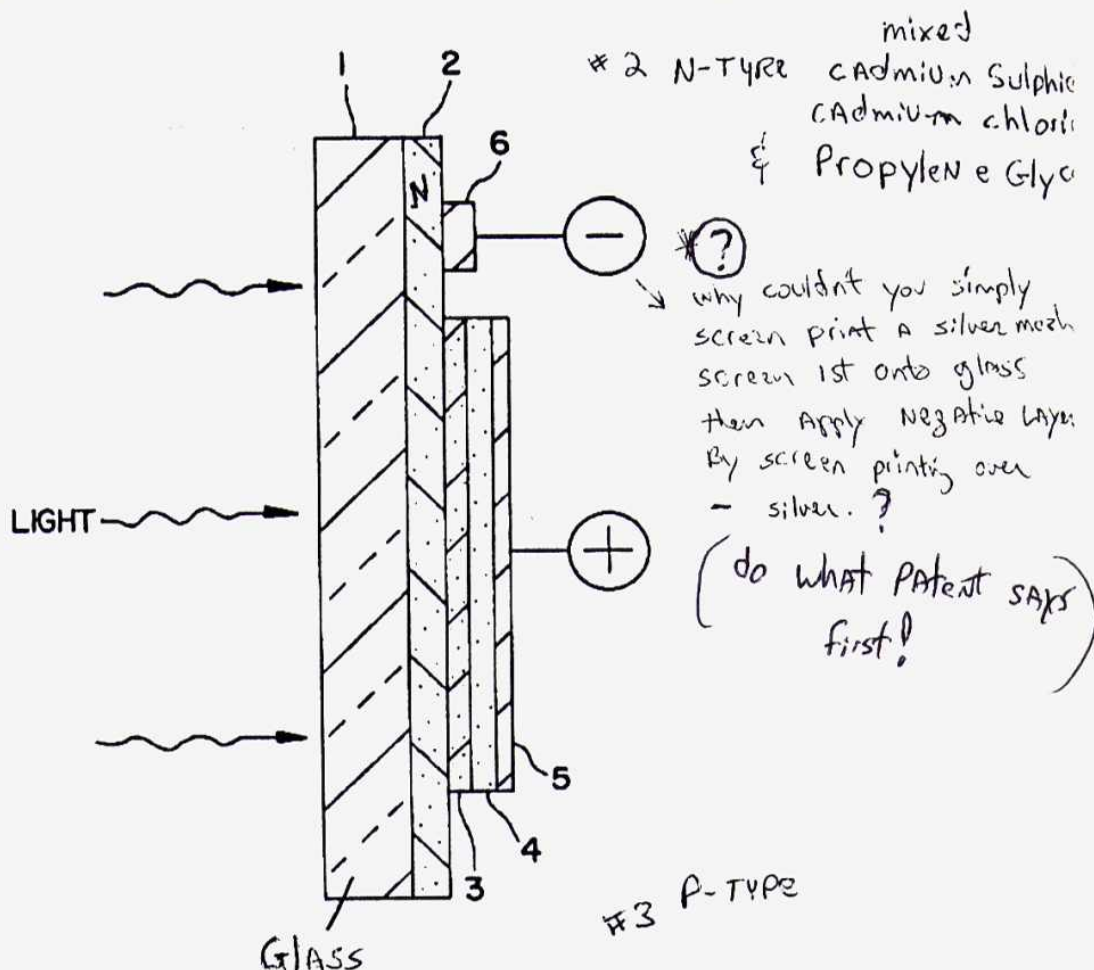 mixed
1
2
# 2 N-TYPE CAdmiUm Sulphid
CAdmiUm chlori
6
& PropyleNe Glyc
N
−
* ?
why couldnt you simply
screen print A silver mesh
screen 1st onto glass
then Apply Negative LAyer
By screen printing over
LIGHT
- silver. ?
+
(do what PAtent sAys
first!)
5
4
3
#3 P-TYPE
GlASS